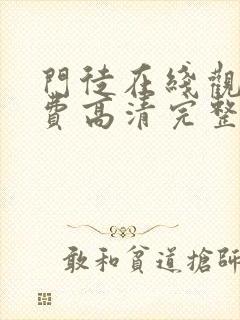 門徒在綫觀
費高清完整
敢和貧道搶師